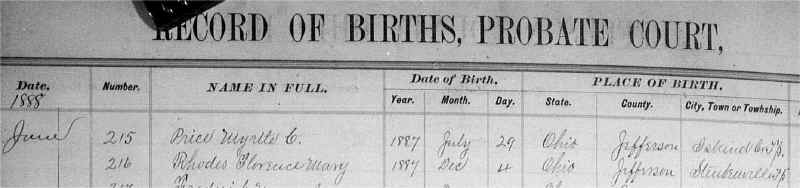 RECORD OF BIRTHS, PROBATE COURT,
Date. Number. NAME IN FULL. Date of Birth. PLACE OF BIRTH.
1888 Year. Month. Day. State. County. City, Town or Township.
June 215 Price Myrtle C. 1887 July 29 Ohio Jefferson Island Crk Tp.
216 Rhodes Florence Mary 1887 Dec 4 Ohio Jefferson Steubenville Tp